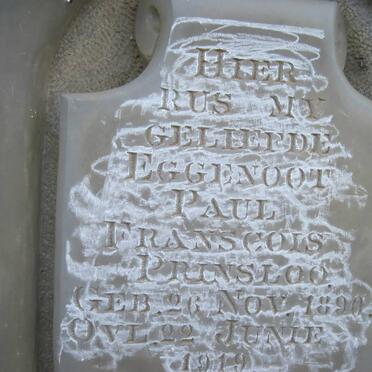 HIER
RUS MY
GELIEFDE
EGGENOOT
PAUL
FRANSCOIS
PRINSLOO.
GEB. 26 NOV. 1890.
OVL. 22 JUNIE
1919